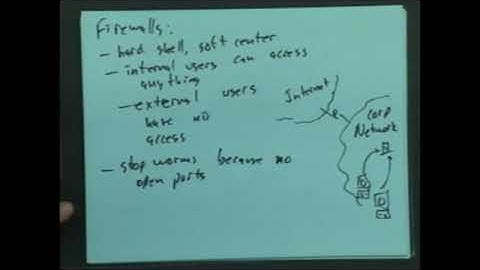 Firewalls:
- hard shell, soft center
- internal users can access
anything
- external users
have no
access
- stop worms because no
open ports
Internet
Corp
Network